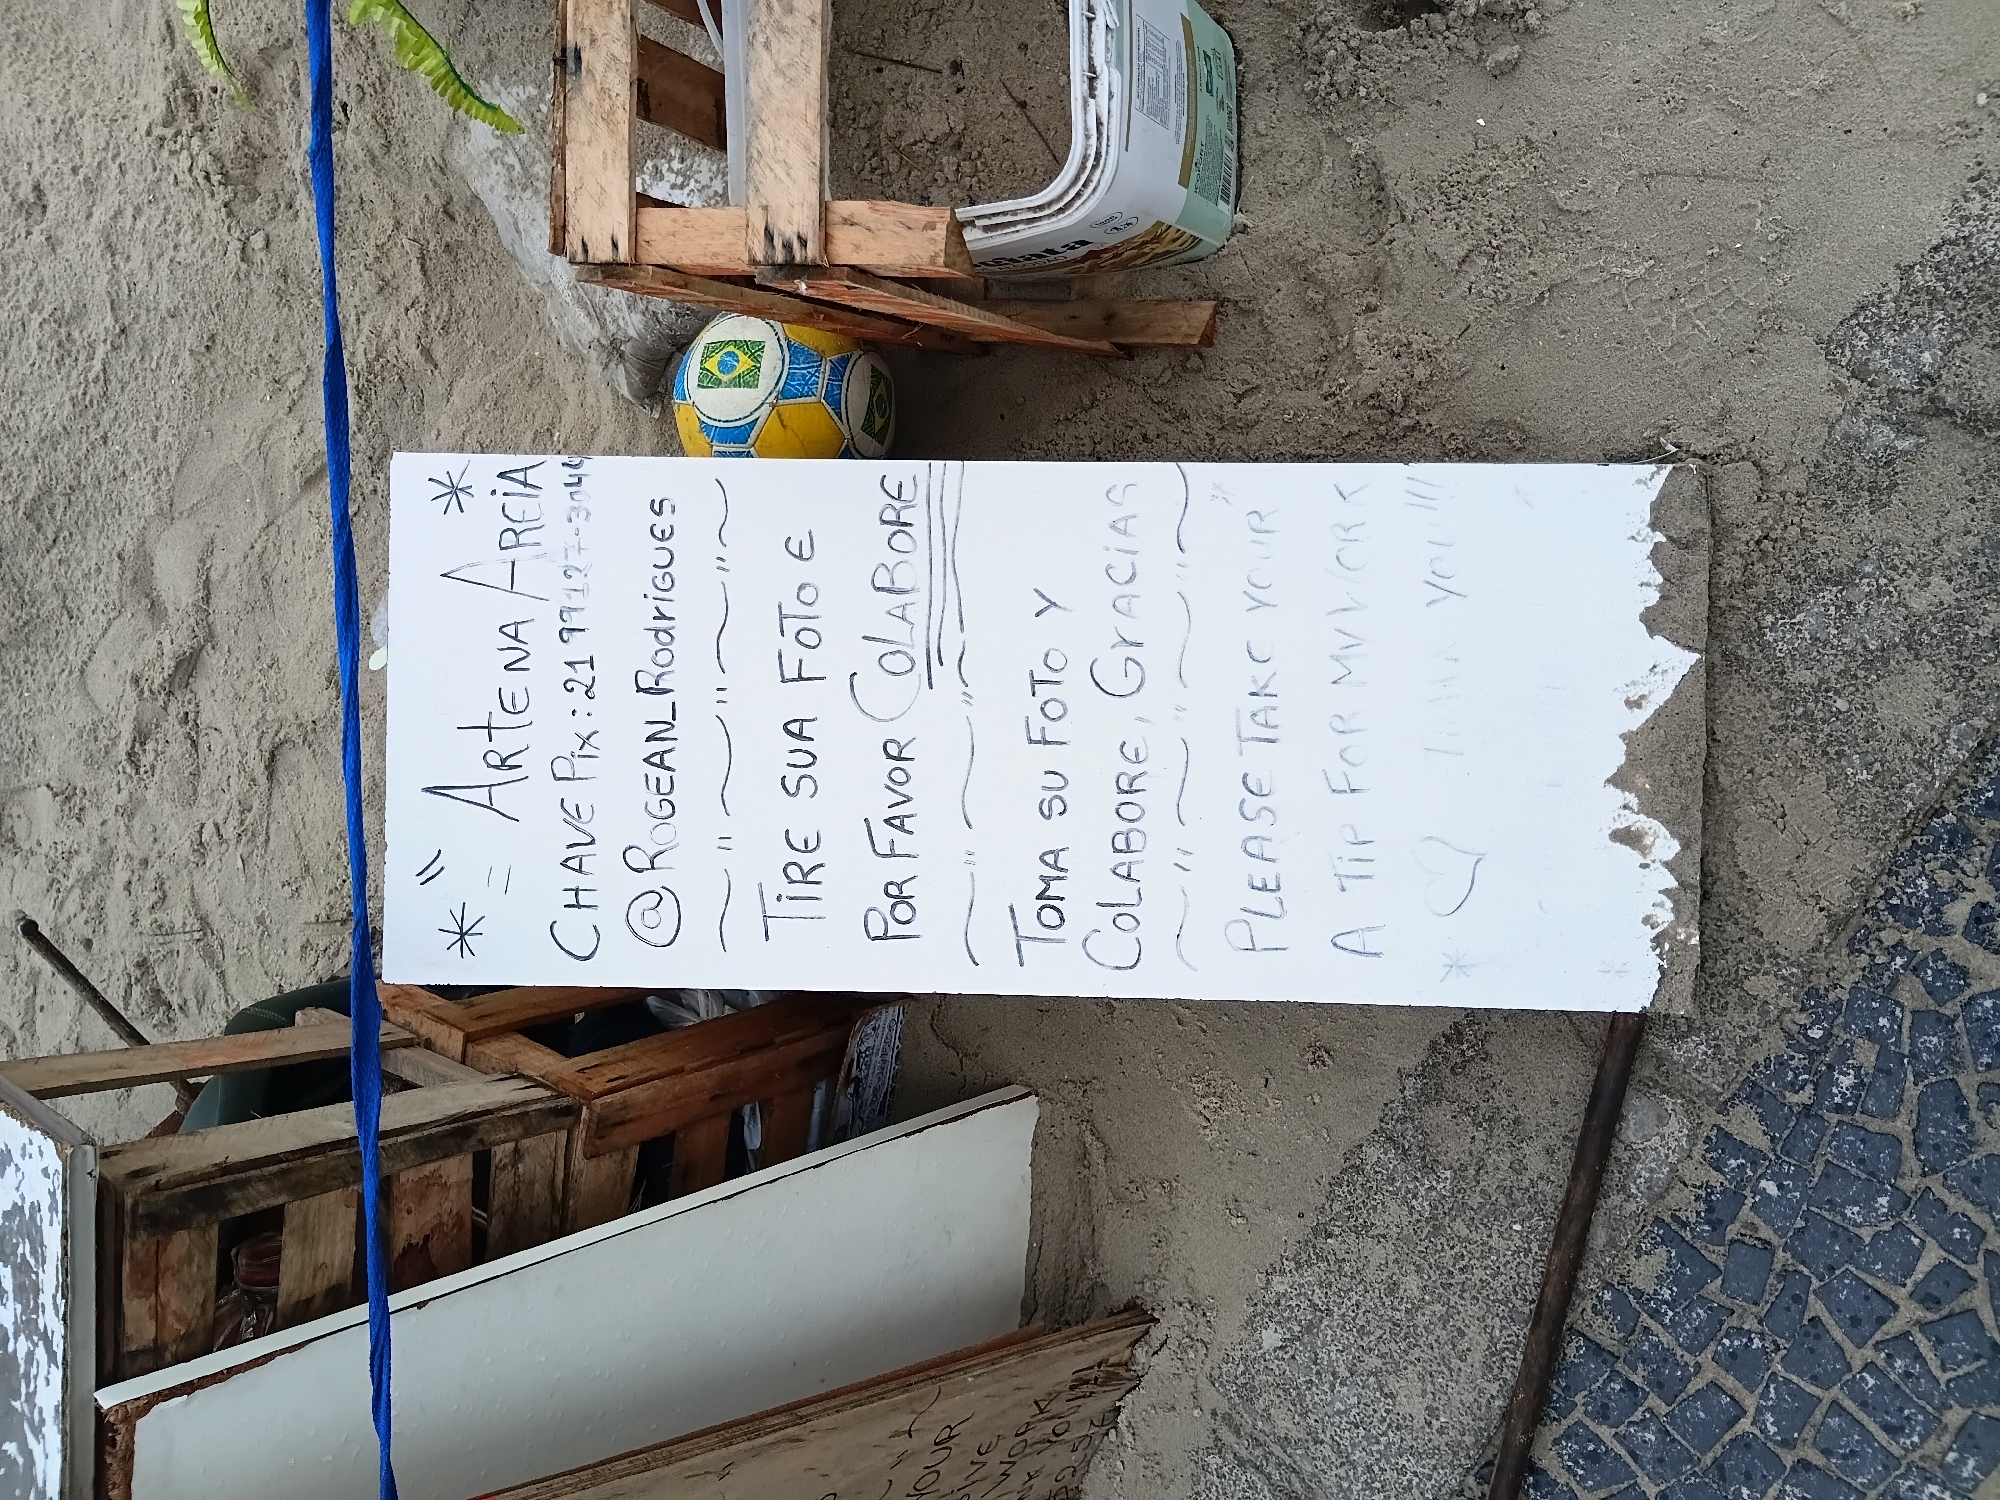 ARTE NA AREIA
CHAVE PIX: 21 99127-3044
@ROGEAN_RODRIGUES
TIRE SUA FOTO E
POR FAVOR COLABORE
TOMA SU FOTO Y
COLABORE, GRACIAS
PLEASE TAKE YOUR
A TIP FOR MY WORK
THANK YOU!!!
YOUR
WORK